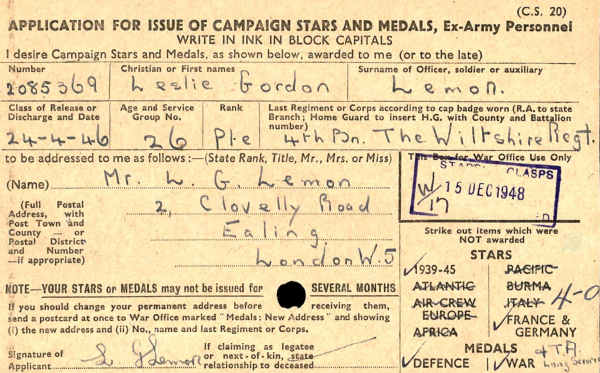 (C.S. 20)
APPLICATION FOR ISSUE OF CAMPAIGN STARS AND MEDALS, Ex-Army Personnel
WRITE IN INK IN BLOCK CAPITALS
I desire Campaign Stars and Medals, as shown below, awarded to me (or to the late)
Number Christian or First names Surname of Officer, soldier or auxiliary
2085369 Leslie Gordon Lemon.
Class of Release or Discharge and Date Age and Service Group No. Rank Last Regiment or Corps according to cap badge worn (R.A. to state Branch; Home Guard to insert H.G. with County and Battalion number)
24-4-46 26 Pte 4th Bn. The Wiltshire Regt.
to be addressed to me as follows:—(State Rank, Title, Mr., Mrs. or Miss)
(Name) Mr. L. G. Lemon
(Full Postal Address, with Post Town and County — or Postal District and Number —if appropriate)
2, Clovelly Road
Ealing
London W.5
This Box for War Office Use Only
STARS CLASPS
W/17 15 DEC 1948
ED
Strike out items which were NOT awarded
STARS
1939-45 PACIFIC
ATLANTIC BURMA
AIR CREW EUROPE ITALY 4-0
AFRICA FRANCE & GERMANY
MEDALS & T.A.
DEFENCE WAR Long Service
NOTE—YOUR STARS or MEDALS may not be issued for SEVERAL MONTHS
If you should change your permanent address before receiving them,
send a postcard at once to War Office marked "Medals: New Address" and showing
(i) the new address and (ii) No., name and last Regiment or Corps.
Signature of Applicant L. G Lemon
If claiming as legatee or next-of-kin, state relationship to deceased